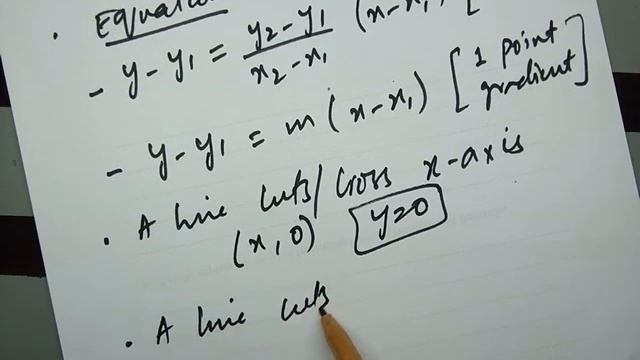 · Equation
- y - y₁ = (y₂ - y₁)/(x₂ - x₁) (x - x₁) [
- y - y₁ = m(x - x₁) [1 point gradient]
· A line cuts/cross x-axis
(x, 0) y=0
· A line cuts